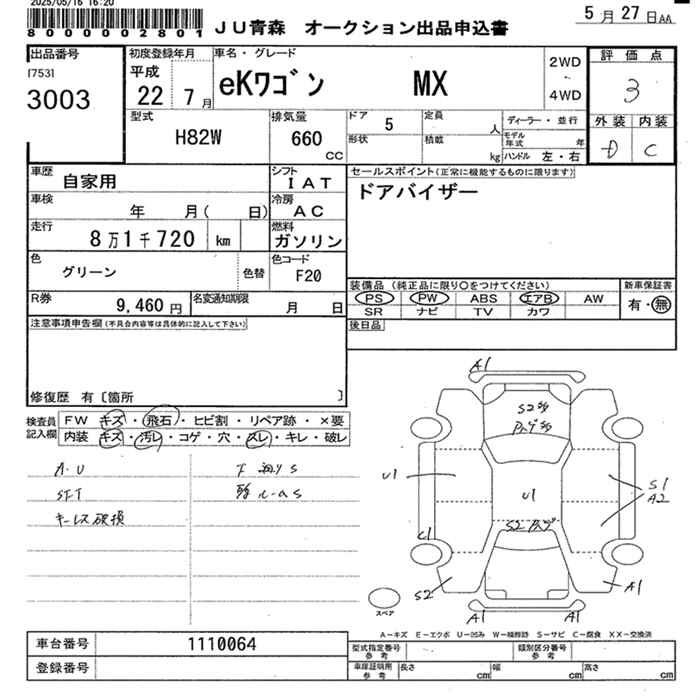 2025/05/16 16:20
8000002801
JU青森 オークション出品申込書
5月27日AA
出品番号
17531
3003
初度登録年月
平成
22 7月
車名・グレード
eKワゴン MX
2WD
4WD
評価点
3
外装 内装
D C
型式
H82W
排気量
660
CC
ドア
5
形状
定員
人
積載
kg
ディーラー・並行
モデル
年式
年
ハンドル 左・右
車歴
自家用
シフト
IAT
車検
年 月( 日)
冷房
AC
走行
8万1千720 km
燃料
ガソリン
色
グリーン
色替
色コード
F20
R券
9,460円
名変通知期限
月 日
セールスポイント(正常に機能するものに限ります)
ドアバイザー
装備品(純正品に限り○をつけてください)
PS PW ABS エアB AW
SR ナビ TV カワ
新車保証書
有・無
後日品
注意事項申告欄(不具合内容等は具体的に記入して下さい)
修復歴 有〔箇所 〕
検査員
記入欄
FW キズ・飛石・ヒビ割・リペア跡・×要
内装 キズ・汚レ・コゲ・穴・スレ・キレ・破レ
A.U
SFT
キーレス破損
下廻りS
A1
S2
U1
U1
S1
A2
C1
S2
S2
A1
A1
A1
スペア
A-キズ E-エクボ U-凹み W-補修跡 S-サビ C-腐食 XX-交換済
車台番号
1110064
登録番号
型式指定番号
参考
類別区分番号
参考
車庫証明用
参考
長さ
cm
幅
cm
高さ
cm